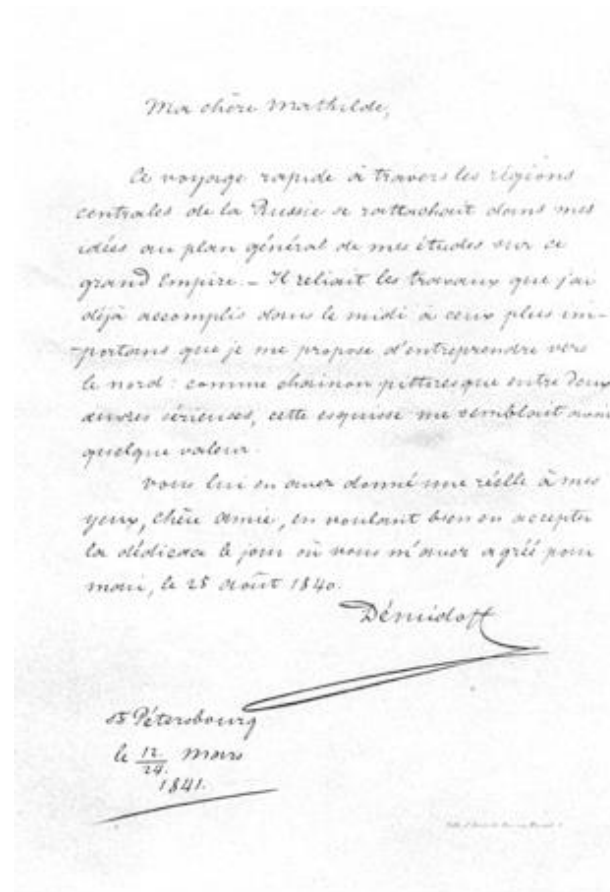 Ma chère Mathilde,
Ce voyage rapide à travers les régions
centrales de la Russie se rattachait dans mes
idées au plan général de mes études sur ce
grand Empire. – Il reliait les travaux que j'ai
déjà accomplis dans le midi à ceux plus im-
-portans que je me propose d'entreprendre vers
le nord : comme chainon pittoresque entre deux
œuvres sérieuses, cette esquisse me semblait avoir
quelque valeur.
Vous lui en avez donné une réelle à mes
yeux, chère amie, en voulant bien en accepter
la dédicace le jour où vous m'avez agréé pour
mari, le 25 Août 1840.
Démidoff
St Pétersbourg
le 12/24. Mars
1841.